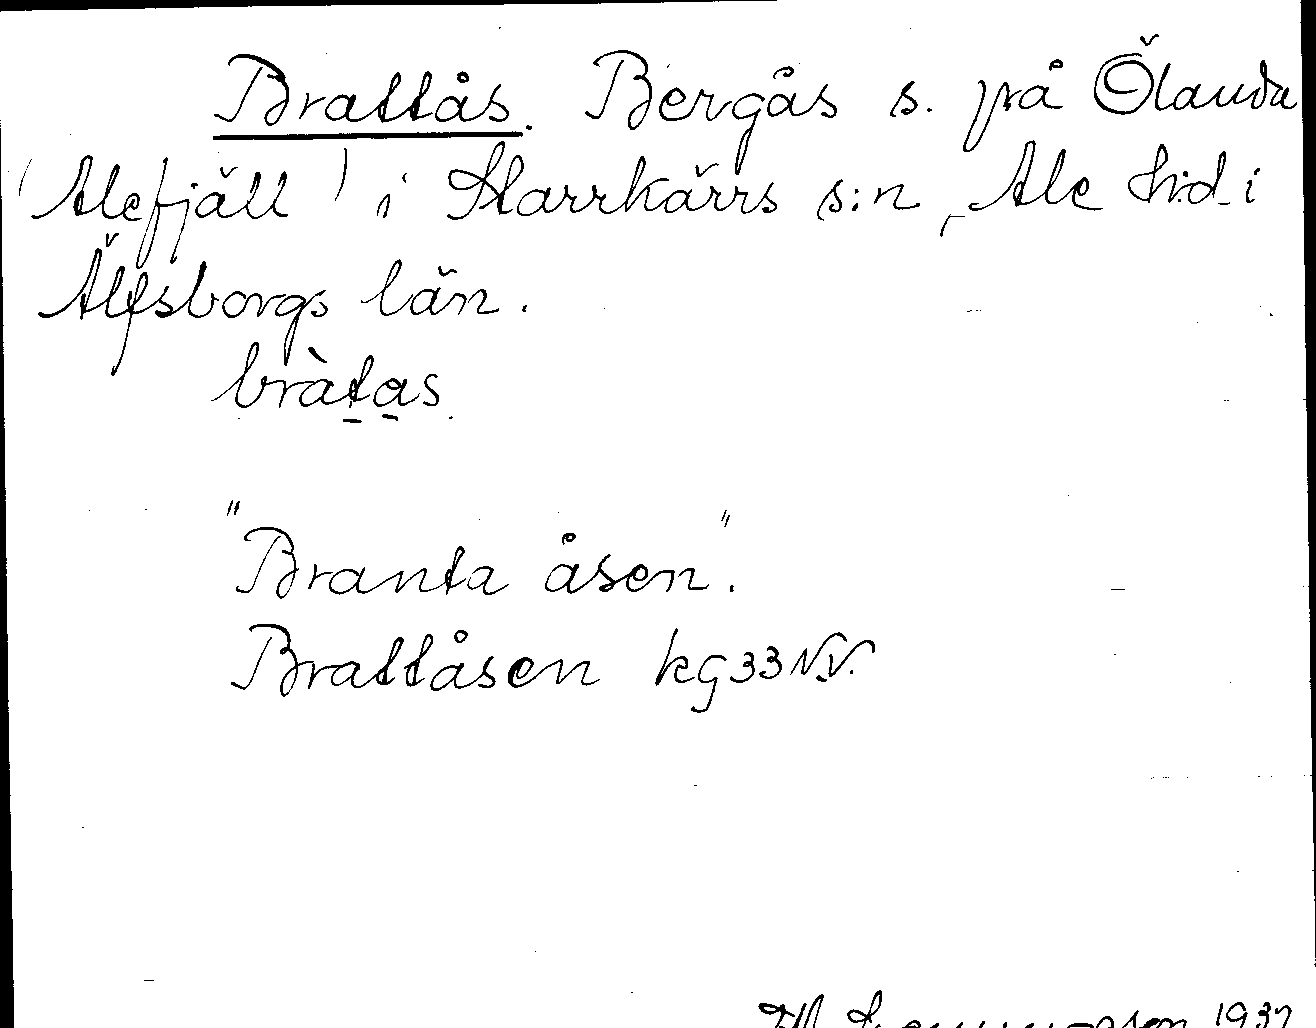 Brattås. Bergås s. på Ölanda
(Alefjäll) i Starrkärrs s:n, Ale h:d i
Älfsborgs län.
bràtas.
"Branta åsen".
Brattåsen kg 33 N.V.
1937